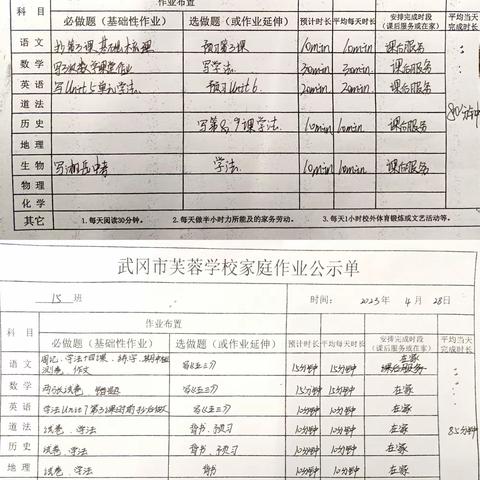 作业布置
科 目 必做题（基础性作业） 选做题（或作业延伸） 预计时长 平均每天时长 安排完成时段（课后服务或在家） 平均当天完成时长
语 文 预习第3课 10min 10min 课后服务
数 学 写学法 30min 30min 课后服务
英 语 写Unit 5单元学法 预习Unit 6. 20min 20min. 课后服务
道 法
历 史 写第8,9课学法 10min 10min 课后服务
80分钟
地 理
生 物 学法 10min 10min 课后服务
物 理
化 学
其它 1.每天阅读30分钟。 2.每天做半小时力所能及的家务劳动。 3.每天1小时校外体育锻炼或文艺活动等。
武冈市芙蓉学校家庭作业公示单
15 班 时间： 2025 年 4 月 28日
科 目 作业布置 预计时长 平均每天时长 安排完成时段（课后服务或在家） 平均当天完成时长
必做题（基础性作业） 选做题（或作业延伸）
语 文 周记、学法十四课、练字、 作文 15分钟 15分钟 在家
数 学 15分钟 15分钟 在家
英 语 学法Unit 7 10分钟 10分钟 在家
道 法 试卷、学法 背书、预习 10分钟 10分钟 在家
85分钟
历 史 试卷、学法 背书、预习 10分钟 10分钟 在家
地 理 试卷、学法 背书 10分钟 10分钟 在家